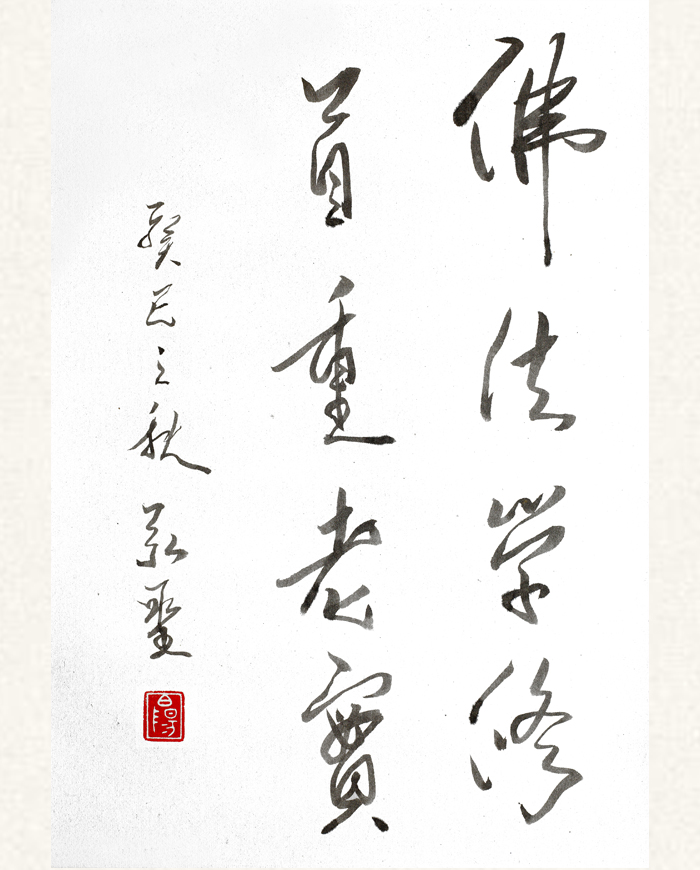 佛法学修
首重老實
癸巳之秋 弘聖